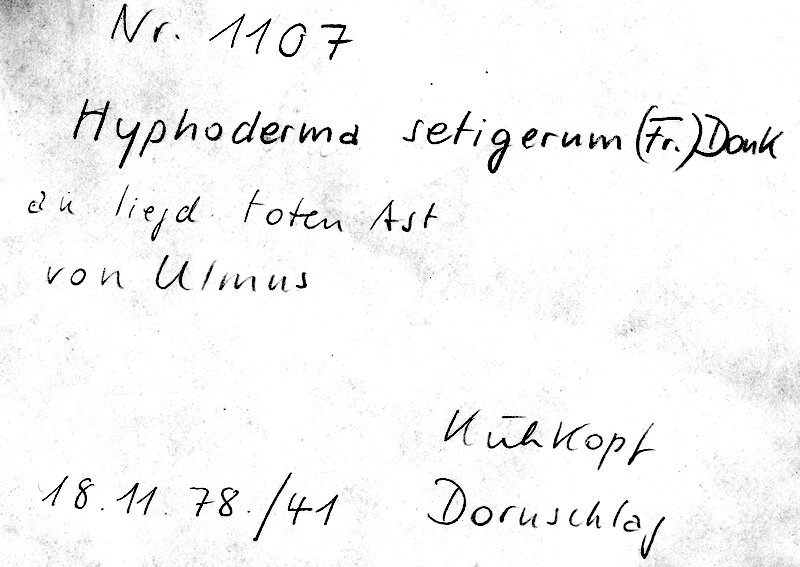 Nr. 1107
Hyphoderma setigerum (Fr.) Donk
an liegd. toten Ast
von Ulmus
Kühkopf
18.11.78./41 Dornschlag